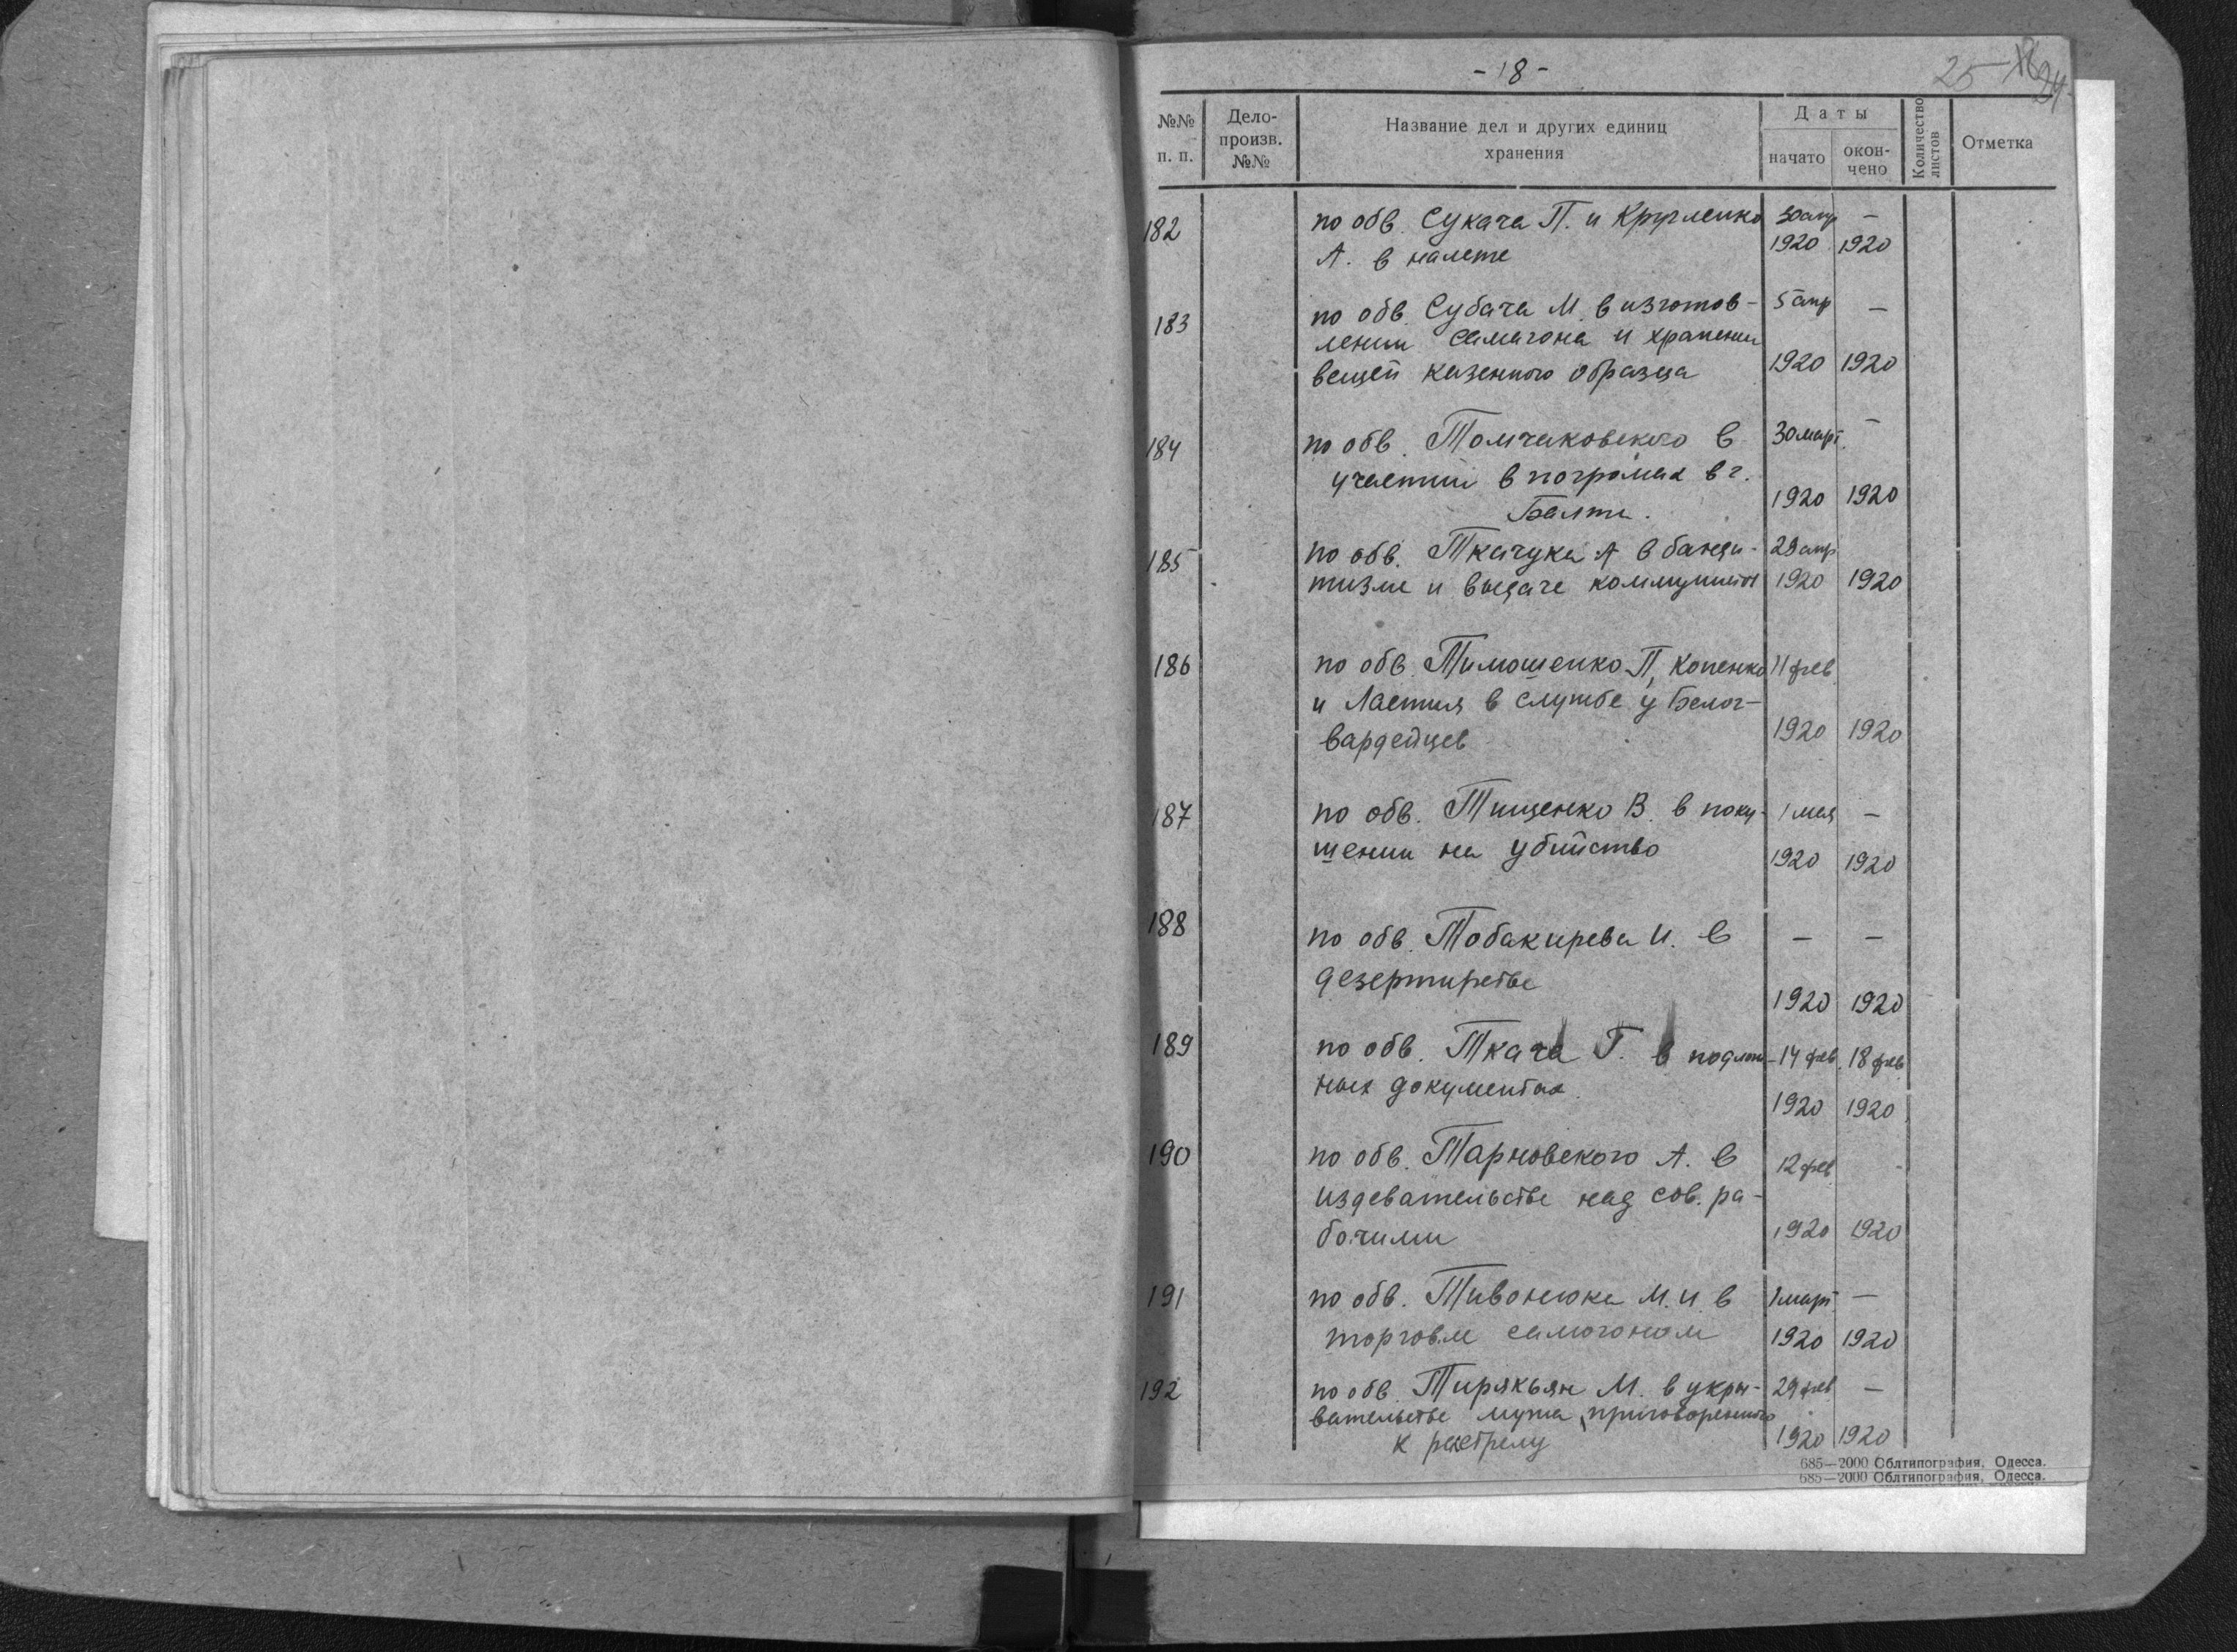 - 18 -
25
24
№№ п. п.
Дело-произв. №№
Название дел и других единиц хранения
Даты
начато
окончено
Количество листов
Отметка
182 по обв. Сукача П. и Кругленко 30 апр —
А. в налете 1920 1920
183 по обв. Субача М. в изготов- 5 апр —
лении самагона и хранении
вещей казенного образца 1920 1920
184 по обв. Томчаковского в 30 март —
участии в погромах в г. 1920 1920
Балта.
185 по обв. Ткачука А в банди- 29 апр
тизме и выдаче коммунистов 1920 1920
186 по обв. Тимошенко П, Копенко 11 фев
и Ластия в службе у Белог-
вардейцев 1920 1920
187 по обв. Тищенко В. в поку- 1 мая —
шении на убийство 1920 1920
188 по обв. Тобакирева И. в — —
дезертирстве 1920 1920
189 по обв. Ткача Г. в подлож- 14 фев. 18 фев
ных документах. 1920 1920
190 по обв. Тарновского А. в 12 фев
издевательстве над сов. ра-
бочими 1920 1920
191 по обв. Тивонюка М. И. в 1 март —
торговле самогоном 1920 1920
192 по обв. Тирякьян М. в укры- 29 фев —
вательстве мужа, приговоренного
к расстрелу 1920 1920
685—2000 Облтипография, Одесса.
685—2000 Облтипография, Одесса.